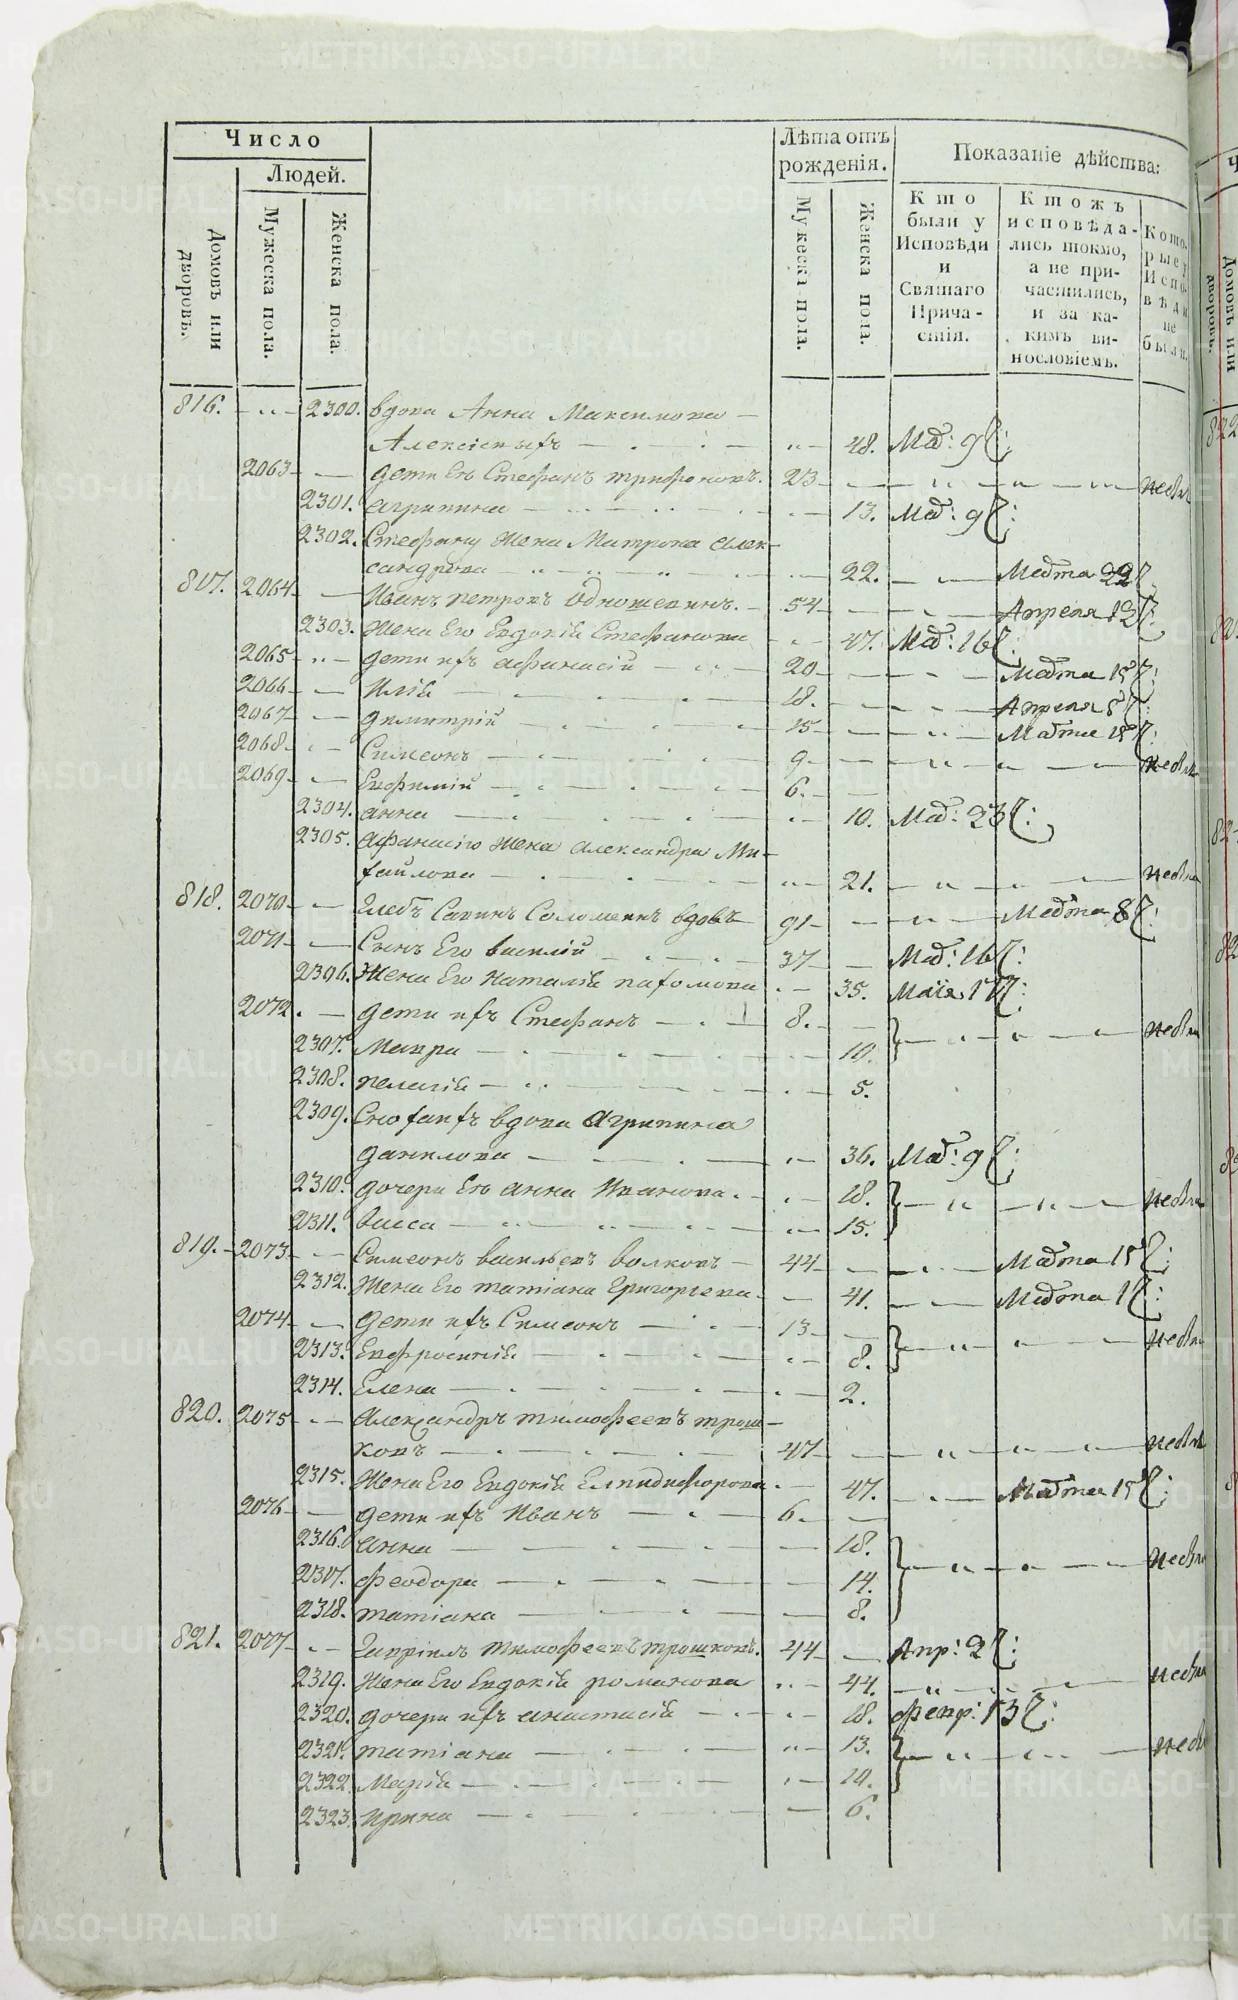 Число
Людей.
Домовъ или дворовъ.
Мужеска пола.
Женска пола.
Лѣта отъ рожденія.
Мужеска пола.
Женска пола.
Показаніе дѣйства:
Кто были у Исповѣди и Святаго Причастія.
Ктожъ исповѣдались токмо, а не причастились, и за какимъ винословіемъ.
Которые у Исповѣди не были.
816. 2300. вдова Анна Максимова
48. 9
2063 дети Ея Стефанъ Трифоновъ. 23
2301. Агрипина 13. 9
2302. Стефану жена Матрона Алек-
сандрова 22. Марта 22
817. 2064 Иванъ Петровъ 54 Апреля 13
2303. Жена Его Евдокія Стефанова 47. Мар: 16
2065 дети ихъ Афанасій 20 Марта 15
2066 Илія 18. Апреля 8
2067 Димитрій 15 Марта 18
2068 Симеонъ 9
2069 Евфимій 6.
2304. Анна 10. Мар: 23
2305. Афанасію жена Александра Ми-
хайлова 21.
818. 2070 Глебъ Савинъ вдовъ 91 Марта 8
2071 Сынъ Его Василій 37 Мар: 16
2306. Жена Его Наталія Пахомова 35. Маія 17
2072 дети ихъ Стефанъ 8.
2307. Мавра 10.
2308. Пелагія 5.
2309. Сноха ихъ вдова Агрипина
Данилова 36. Мар: 9
2310. дочери Ея Анна Иванова. 18.
2311. Васса 15.
819. 2073 Симеонъ Васильевъ Волковъ 44 Марта 15
2312. Жена Его Татіана Григорьева 41. Марта 1
2074 дети ихъ Симеонъ 13
2313. Евфросинія 8.
2314. Елена 2.
820. 2075 Александръ Тимофеевъ Трош-
ковъ 47
2315. Жена Его Евдокія Елпидифорова 47. Марта 15
2076 дети ихъ Иванъ 6
2316. Анна 18.
2317. Феодора 14.
2318. Татіана 8.
821. 2077 Гавріилъ Тимофеевъ Трошковъ. 44 Апр: 2
2319. Жена Его Евдокія Романова 44.
2320. дочери ихъ Анастасія 18. Февр: 13
2321. Татіана 13.
2322. Марія 10.
2323. Ирина 6.
METRIKI.GASO-URAL.RU